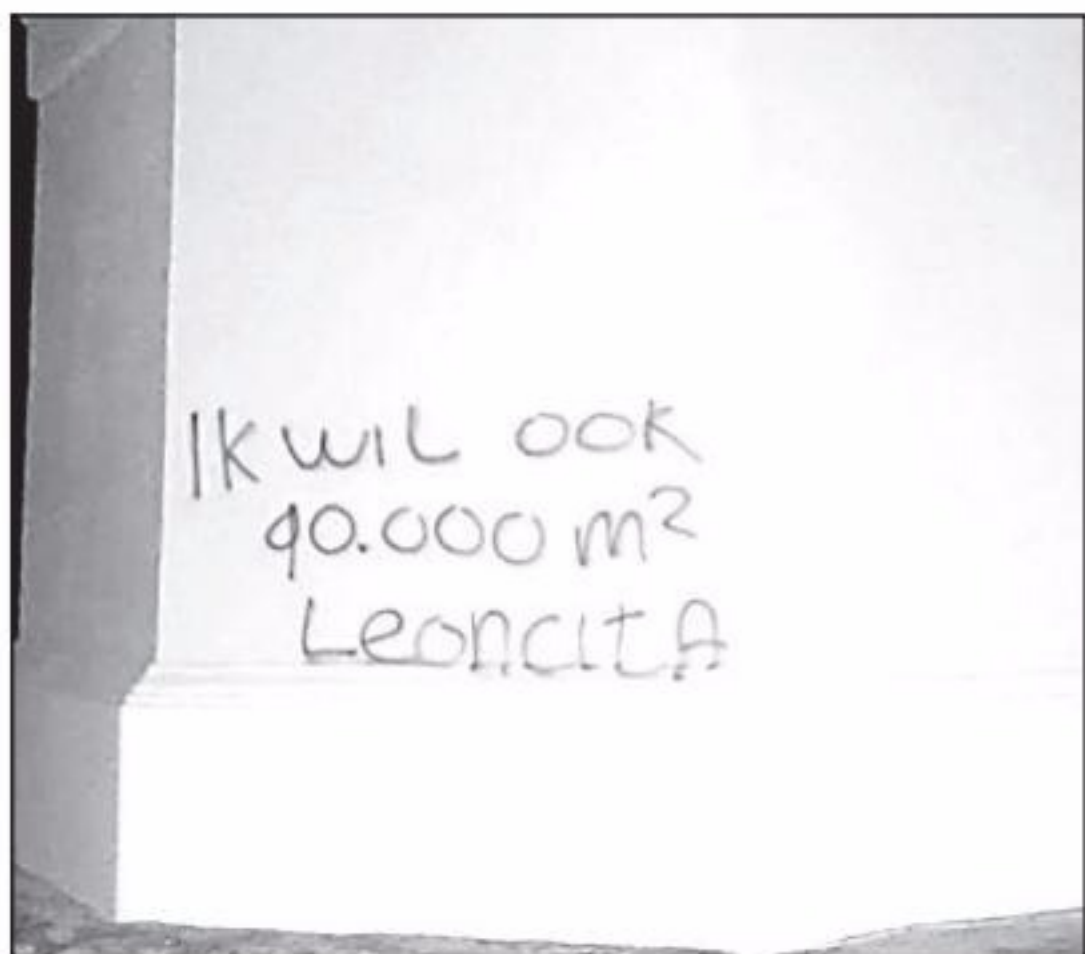 Ik wiL ook
90.000 m²
LeoncitA